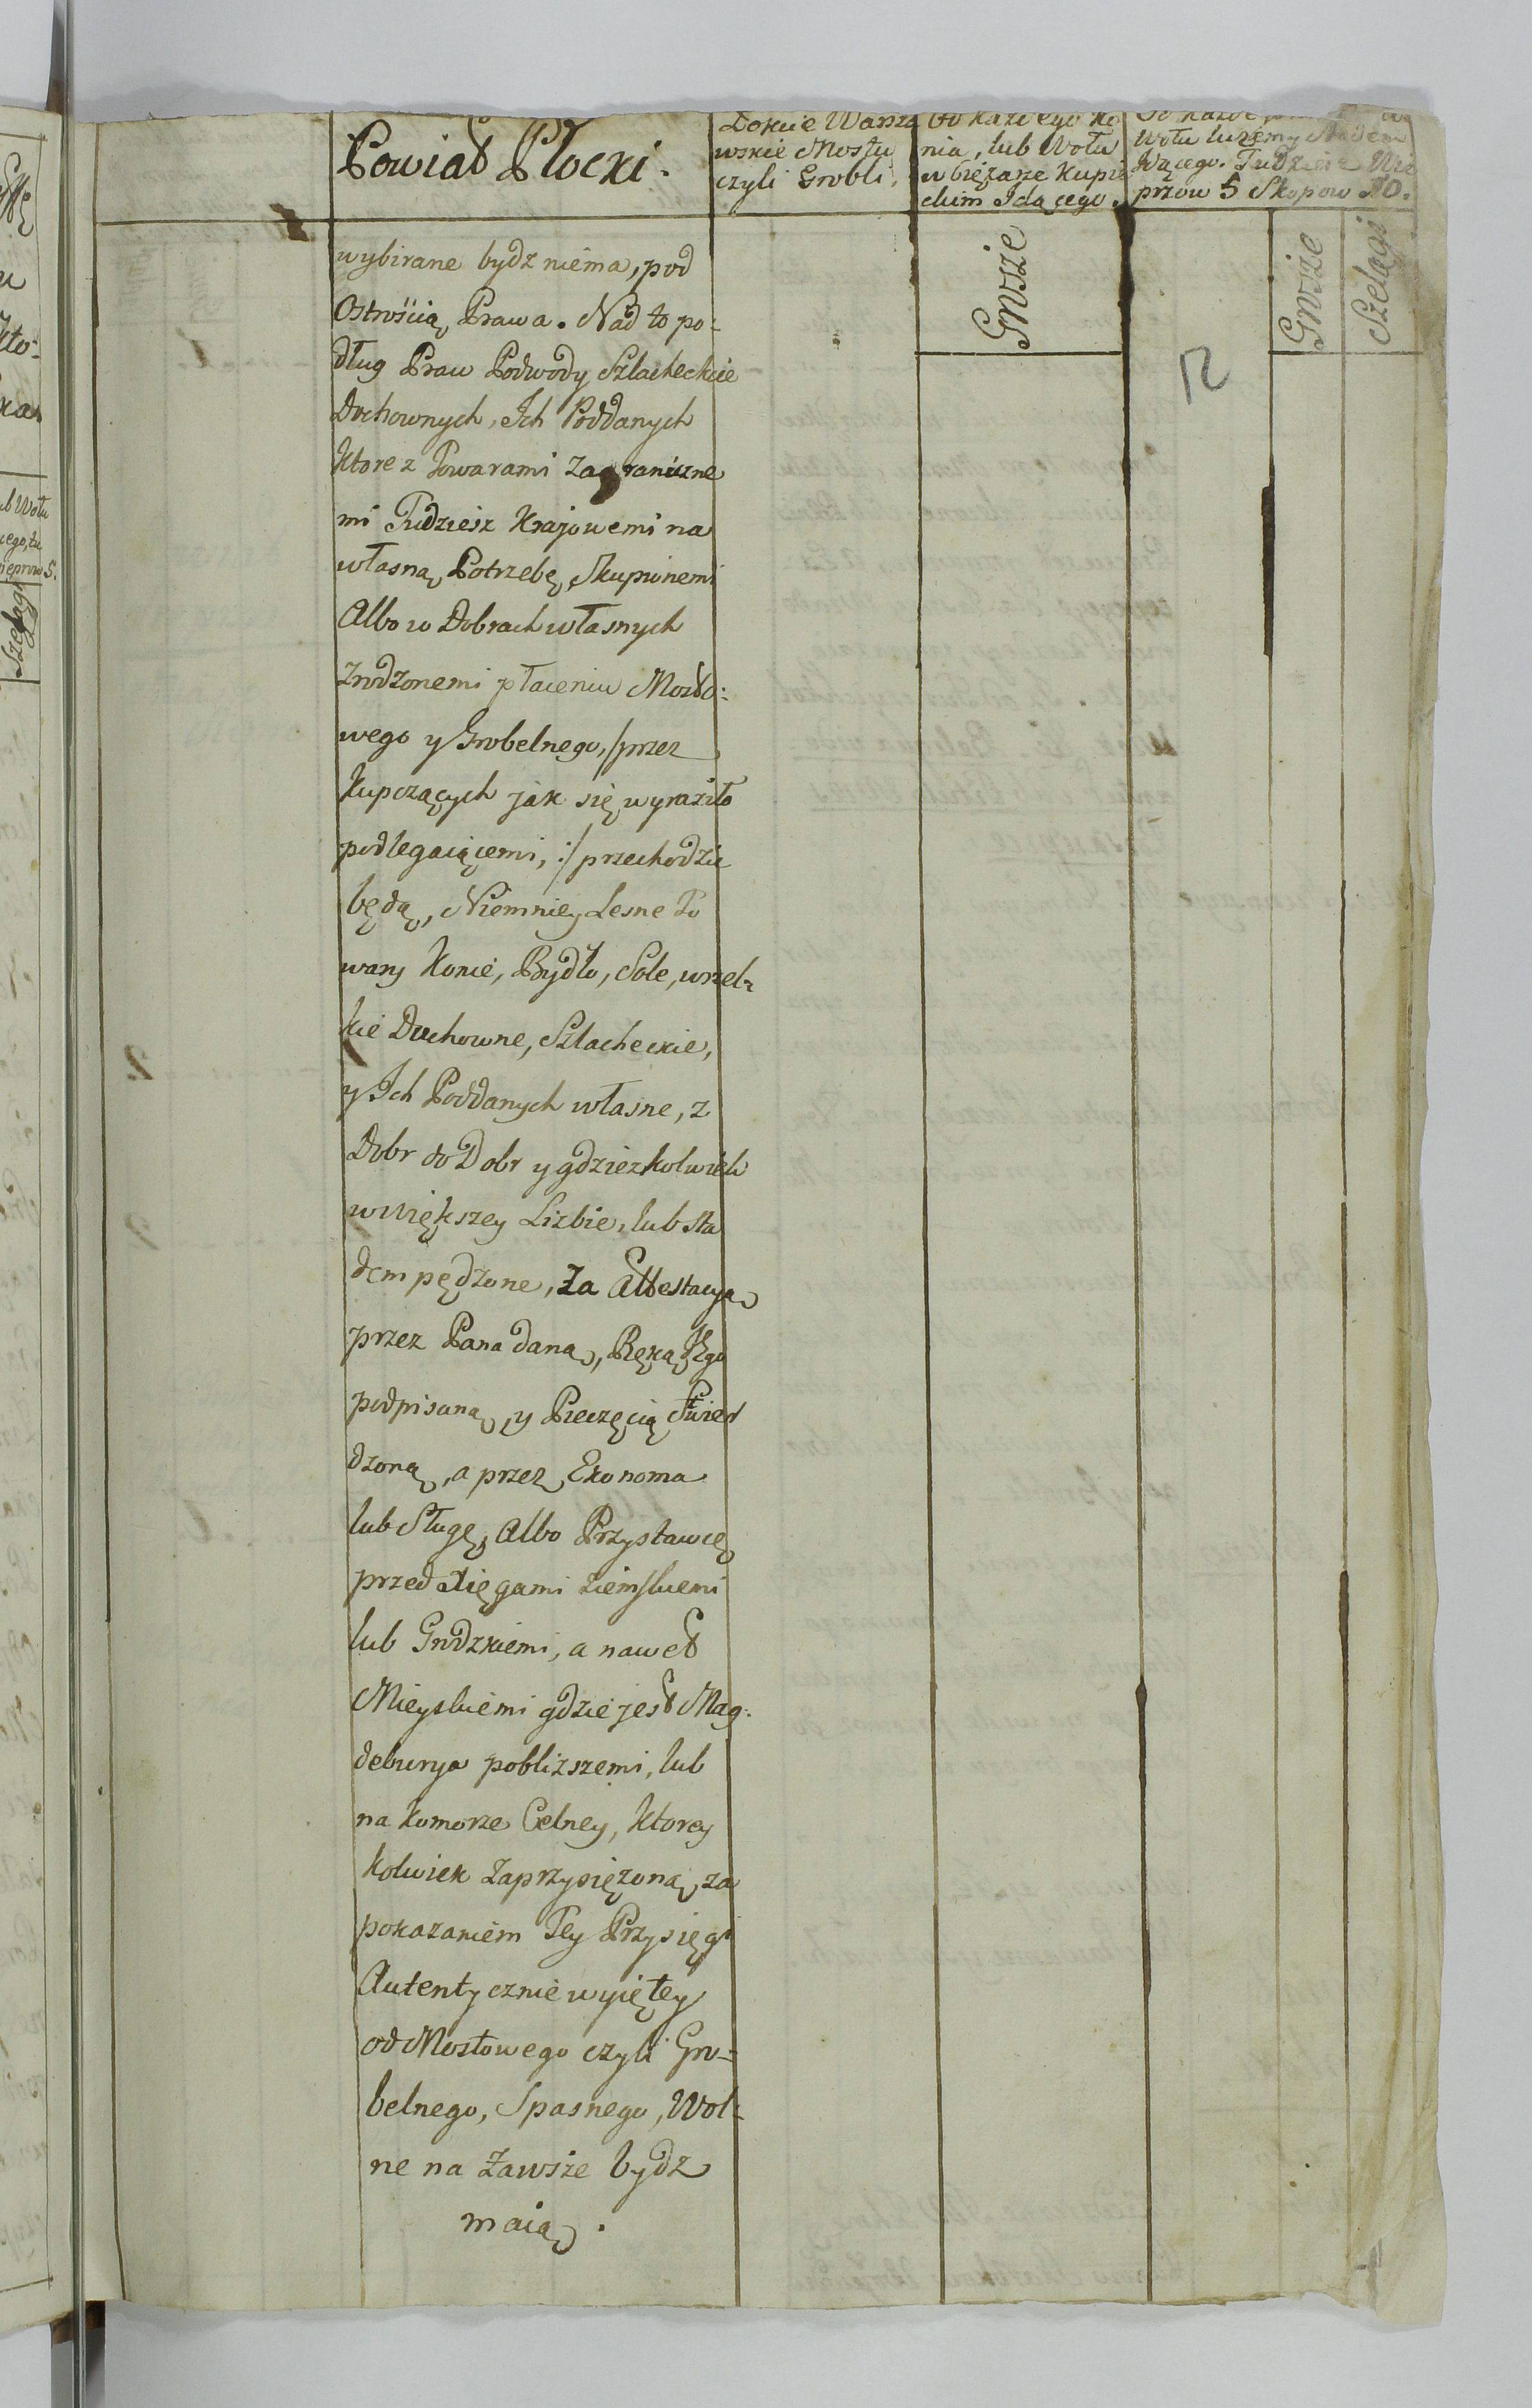 Powiat Płocki.
Łokcie Warsza
wskie Mostu
czyli Grobli,
Od każdego ko
nia, lub Wołu
w ciężarze kupie
ckim Idącego.
Wołu luzem y Stadem
Idącego. Tudziesz Wie
przow 5 Skopow 10.
Grosze
Grosze
Szelągi
12
wybirane bydz niema, pod
Ostrością Prawa. Nad to po=
dług Praw Podwody Szlacheckie
Duchownych, Ich Poddanych
ktore z Towarami zagraniczne
mi Tudziesz Krajowemi na
własną Potrzebę, Skupionemi
Albo w Dobrach własnych
zrodzonemi płaceniu Mosto=
wego y Grobelnego, /przez
kupczących jak się wyraziło
podlegaiącemi, :/ przechodzic
będą, Niemniey Lesne To
wary Konie, Bydło, Sole, wszel=
kie Duchowne, Szlacheckie,
y Ich Poddanych własne, z
Dobr do Dobr y gdzieżkolwiek
w większey Liczbie, lub sta
dem pędzone, za Attestacyą
przez Pana daną, Ręką Jego
podpisaną, y Pieczęcią stwier
dzoną, a przez Ekonoma
lub Sługę, Albo Przystawcę
przed Xięgami ziemskiemi
lub Grodzkiemi, a nawet
Mieyskiemi gdzie jest Mag=
deburya pobliższemi, lub
na Komorze Celney, ktorey
kolwiek zaprzysiężoną, za
pokazaniem Tey Przysięgi
Autentycznie wyiętey
od Mostowego czyli Gro=
belnego, Spasnego, Wol=
ne na zawsze bydz
maią.